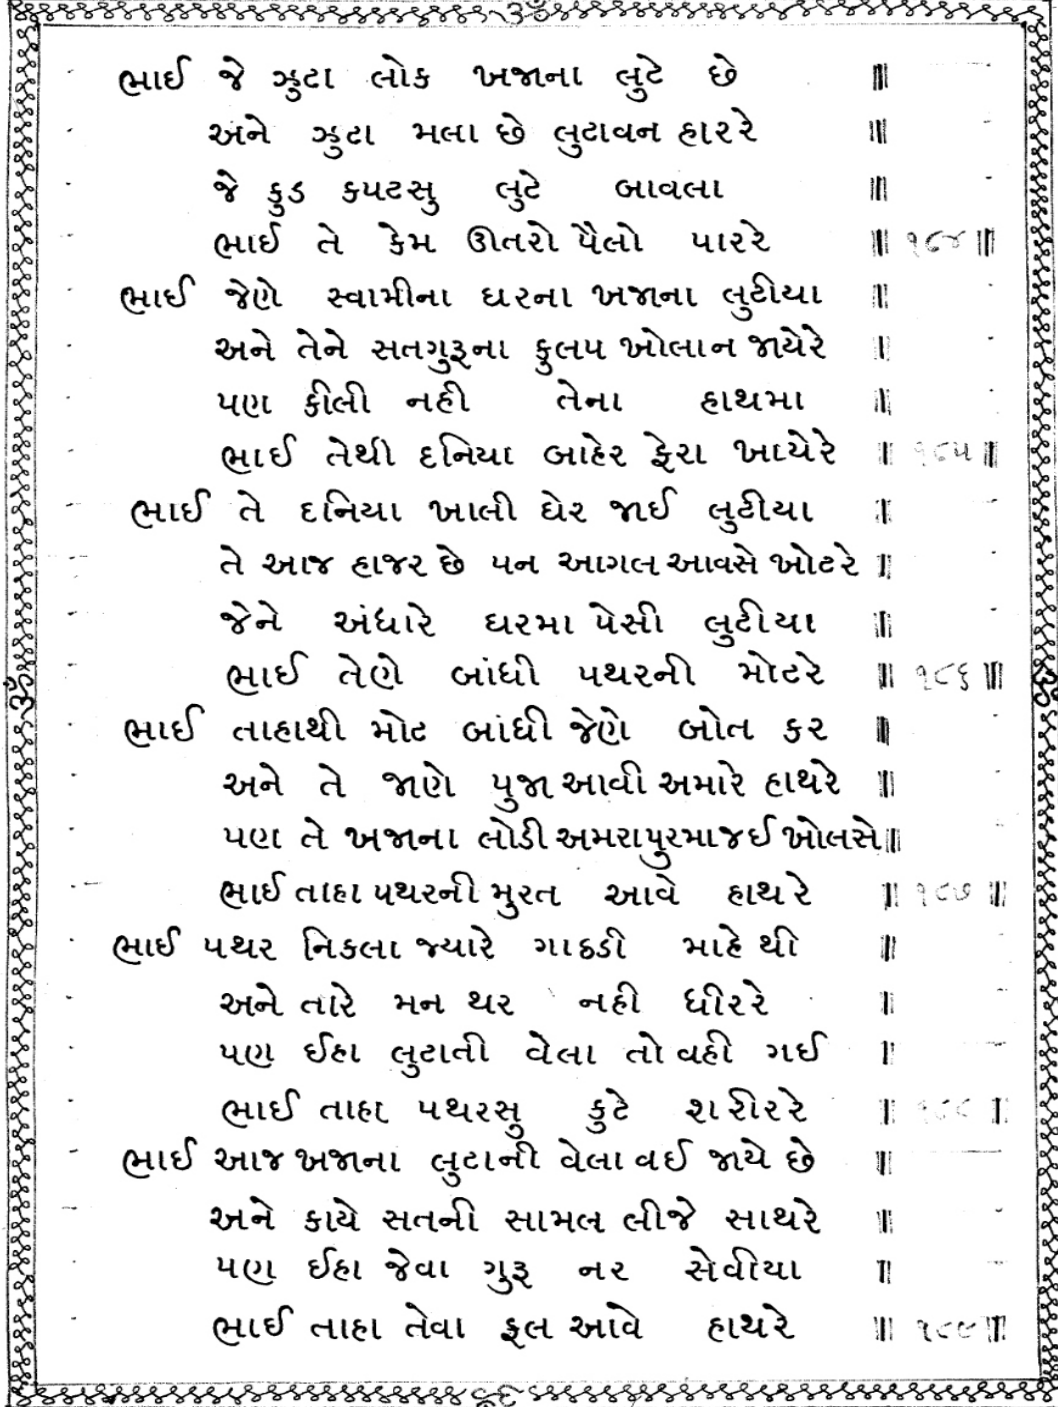 ભાઈ જે ઝુટા લોક ખજાના લુટે છે ॥
અને ઝુટા મલા છે લુટાવન હારરે ॥
જે કુડ કપટસુ લુટે બાવલા ॥
ભાઈ તે કેમ ઊતરો પૈલો પારરે ॥ ૧૮૪ ॥
ભાઈ જેણે સ્વામીના ઘરના ખજાના લુટીયા ॥
અને તેને સતગુરૂના કુલપ ખોલાન જાયેરે ॥
પણ કીલી નહી તેના હાથમા ॥
ભાઈ તેથી દનિયા બાહેર ફેરા ખાયેરે ॥ ૧૮૫ ॥
ભાઈ તે દનિયા ખાલી ઘેર જાઈ લુટીયા ॥
તે આજ હાજર છે પન આગલ આવસે ખોટરે ॥
જેને અંધારે ઘરમા પેસી લુટીયા ॥
ભાઈ તેણે બાંધી પથરની મોટરે ॥ ૧૮૬ ॥
ભાઈ તાહાથી મોટ બાંધી જેણે બોત કર ॥
અને તે જાણે પુજા આવી અમારે હાથરે ॥
પણ તે ખજાના લોડી અમરાપુરમા જઈ ખોલસે ॥
ભાઈ તાહા પથરની મુરત આવે હાથરે ॥ ૧૮૭ ॥
ભાઈ પથર નિકલા જ્યારે ગાઠડી માહે થી ॥
અને તારે મન થર નહી ધીરરે ॥
પણ ઈહા લુટાતી વેલા તો વહી ગઈ ॥
ભાઈ તાહા પથરસુ કુટે શરીરરે ॥ ૧૮૮ ॥
ભાઈ આજ ખજાના લુટાની વેલા વઈ જાયે છે ॥
અને કાયે સતની સામલ લીજે સાથરે ॥
પણ ઈહા જેવા ગુરૂ નર સેવીયા ॥
ભાઈ તાહા તેવા ફલ આવે હાથરે ॥ ૧૮૯ ॥